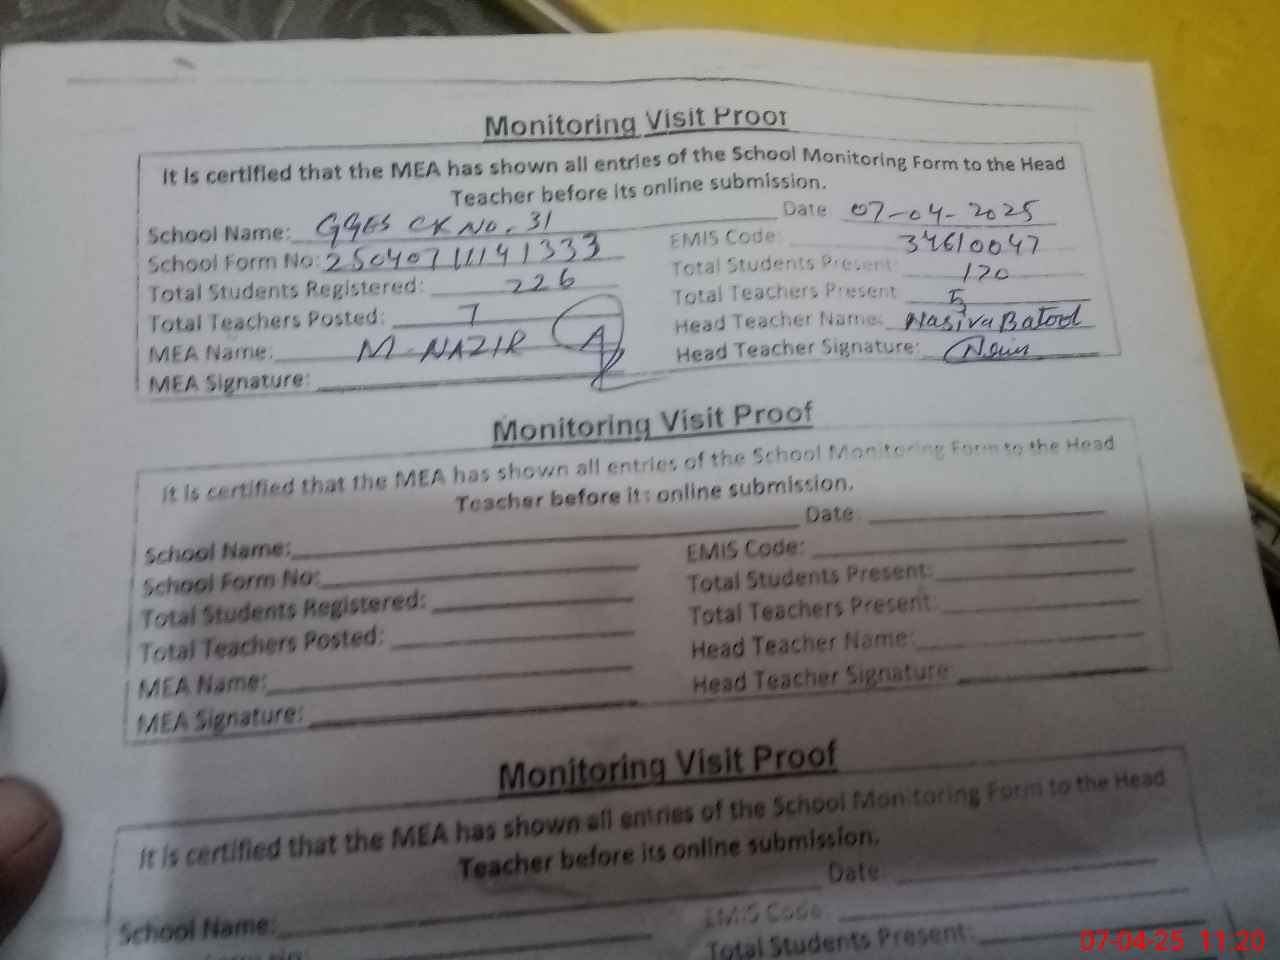 Monitoring Visit Proof
It is certified that the MEA has shown all entries of the School Monitoring Form to the Head
Teacher before its online submission.
School Name: GGES CK No. 31 Date 07-04-2025
School Form No: 25040711141333 EMIS Code: 34610047
Total Students Registered: 226 Total Students Present: 170
Total Teachers Posted: 7 Total Teachers Present 5
MEA Name: M-NAZIR Head Teacher Name: Batool
MEA Signature: Head Teacher Signature:
Monitoring Visit Proof
It is certified that the MEA has shown all entries of the School Monitoring Form to the Head
Teacher before its online submission.
School Name: Date:
School Form No: EMIS Code:
Total Students Registered: Total Students Present:
Total Teachers Posted: Total Teachers Present:
MEA Name: Head Teacher Name:
MEA Signature: Head Teacher Signature:
Monitoring Visit Proof
It is certified that the MEA has shown all entries of the School Monitoring Form to the Head
Teacher before its online submission.
Date:
School Name: EMIS Code:
Total Students Present:
07-04-25 11:20